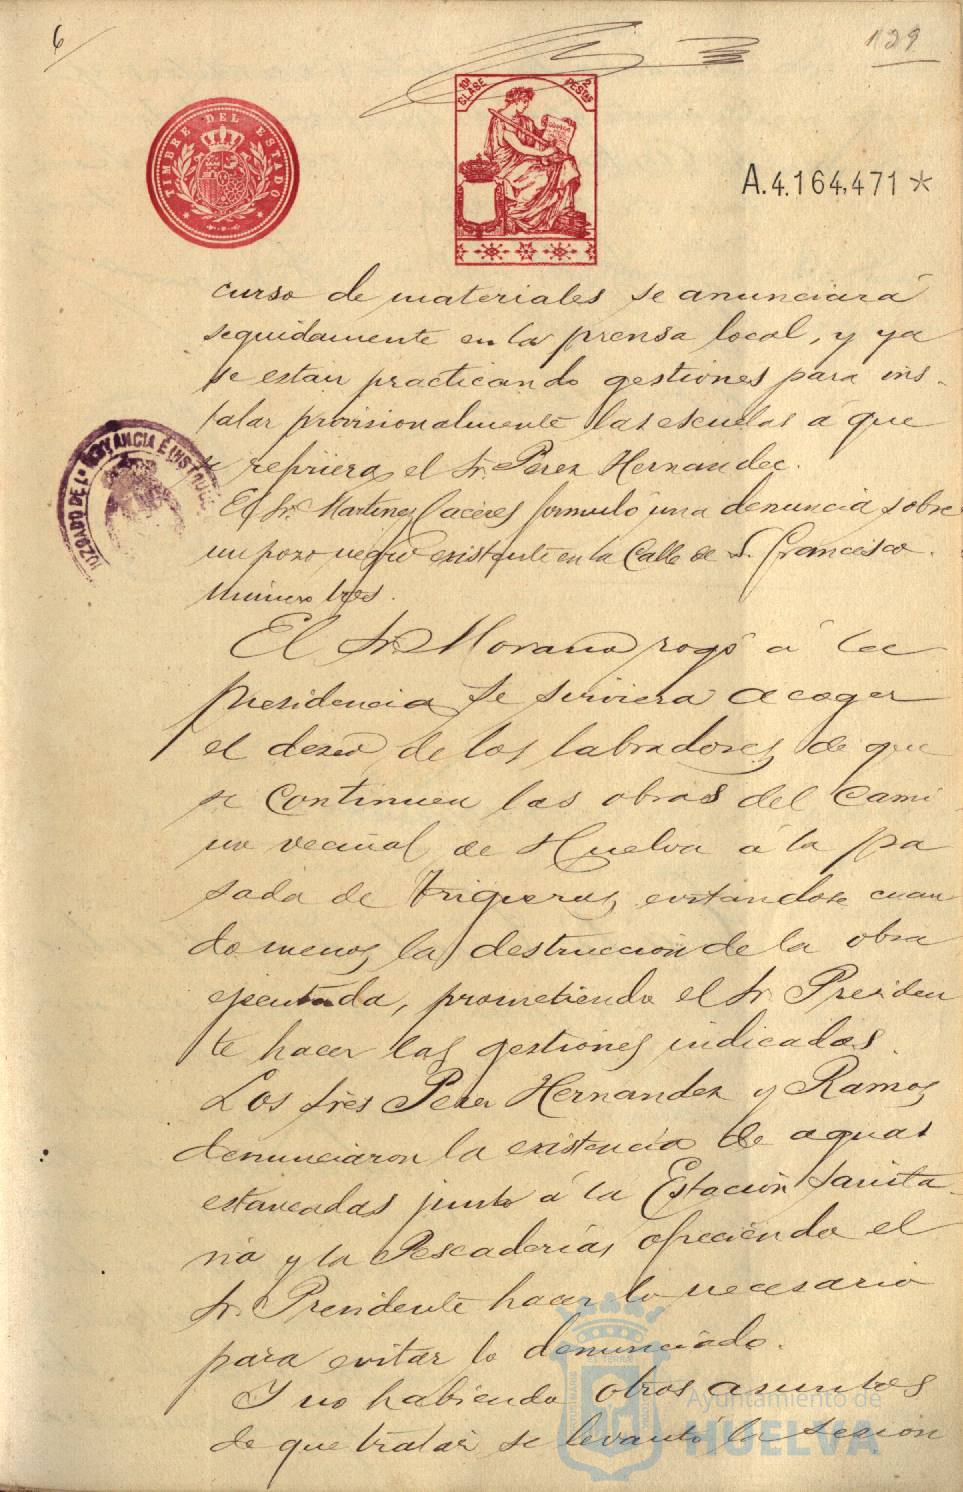 6
129
TIMBRE DEL ESTADO
10ª CLASE
2 PESETAS
A.4.164,471*
curso de materiales se anunciará
seguidamente en la prensa local, y ya
se están practicando gestiones para ins-
talar provisionalmente las escuelas á que
se refiriera el Sr. Pérez Hernandez.
JUZGADO DE 1ª INSTANCIA É INSTRUC
El Sr. Martinez Cáceres formuló una denuncia sobre
un pozo negro existente en la Calle de S. Francisco
número tres.
El Sr. Morano rogó á la
presidencia se sirviera acoger
el deseo de los labradores de que
se continuen las obras del cami
no vecinal de Huelva á la pa
sada de Trigueros, evitandose cuan
do menos la destrucción de la obra
ejecutada, prometiendo el Sr. Presiden
te hacer las gestiones indicadas.
Los Sres Perez Hernandez y Ramos
denunciaron la existencia de aguas
estancadas junto á la Estación Sanita-
ria y la Pescadería, ofreciendo el
Sr. Presidente hacer lo necesario
para evitar lo denunciado.
Y no habiendo otros asuntos
de que tratar se levantó la sesion
Ayuntamiento de
HUELVA